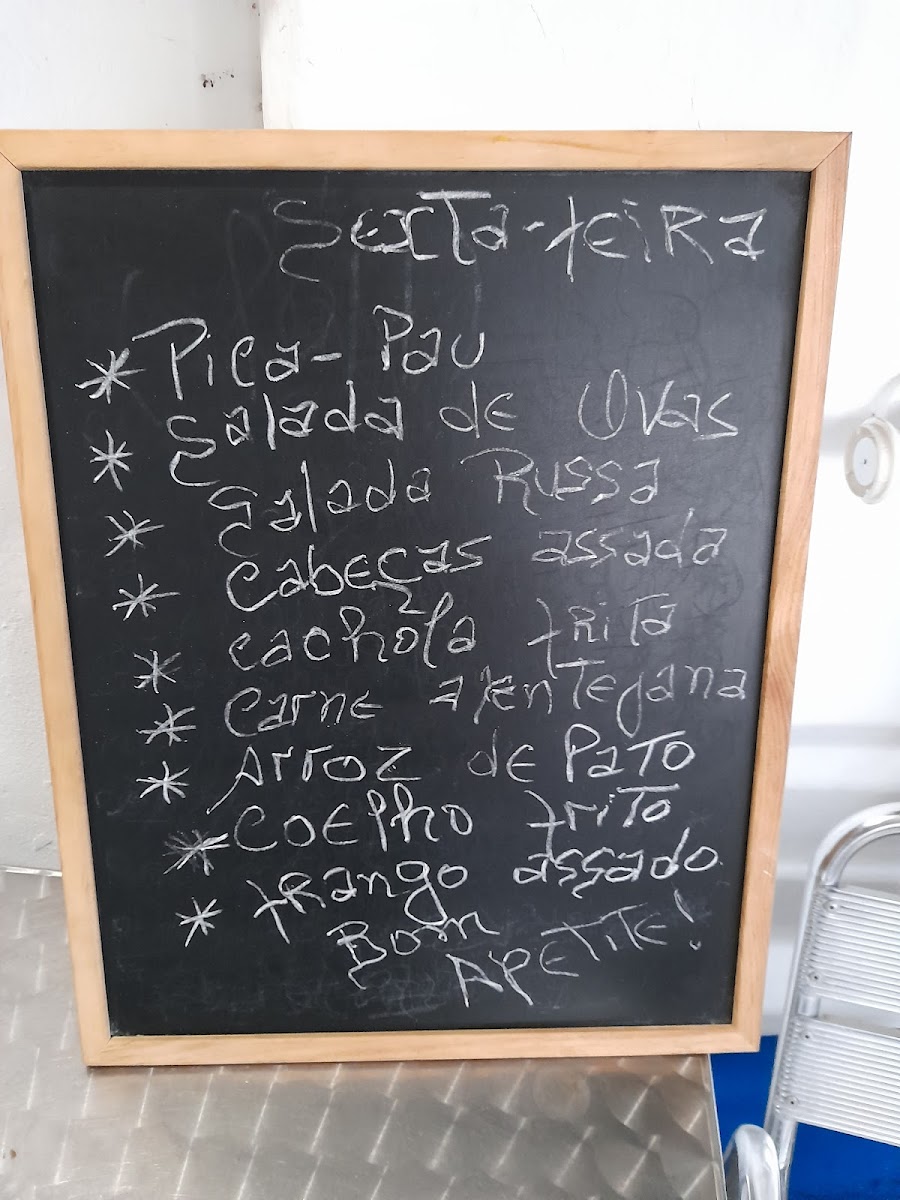 Sexta-feira
* Pica-Pau
* Salada de Ovas
* Salada Russa
* Cabeças assada
* cachola frita
* Carne alentejana
* Arroz de Pato
* COElho frito
* frango assado
Bom
APETITE!